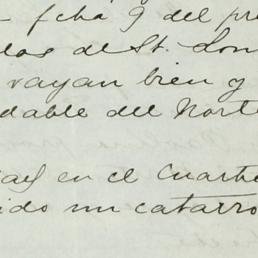 fcha 9 del pre
das de St. Lou
rayan bien y
dable del Norte
en el Cuarte
ido un catarro